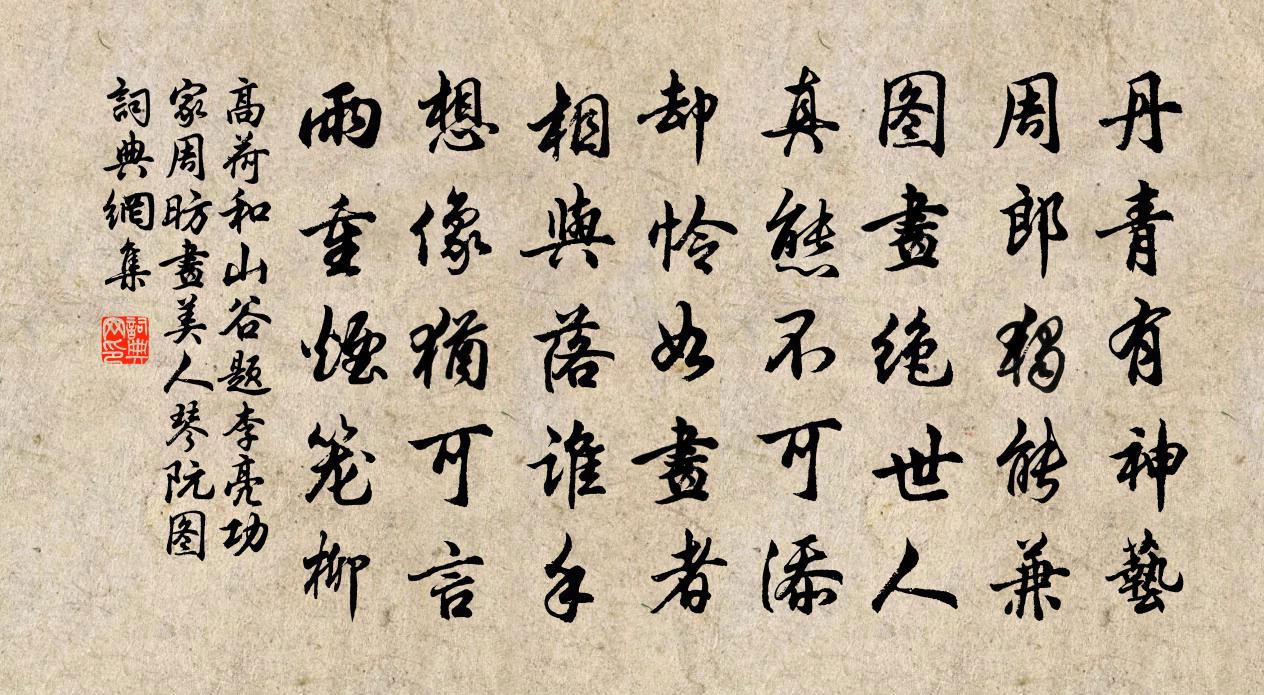 丹青有神藝
周郎獨能兼
图畫絶世人
真態不可添
却憐如畫者
相與落誰手
想像猶可言
雨重煙笼柳
高荷和山谷题李亮功
家周昉畫美人琴阮图
詞典網集
詞典网印